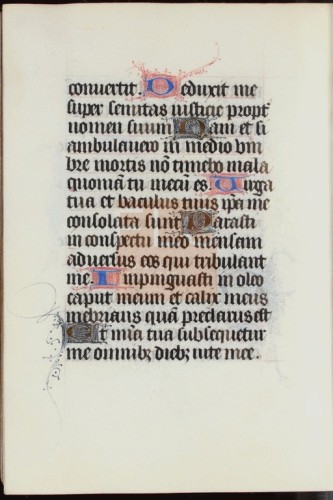 conuertit. Deduxit me
super semitas iusticie propt
nomen suum Nam et si
ambulauero in medio vm
bre mortis nō timebo mala
quoniam tu mecū es. Uirga
tua et baculus tuus ip̄a me
consolata sunt Parasti
in conspectu meo mensam
aduersus eos qui tribulant
me. Inpinguasti in oleo
caput meum et calix meus
inebrians quā preclarus est
Et mīa tua subsequetur
me omnibꝫ diebꝫ uite mee.